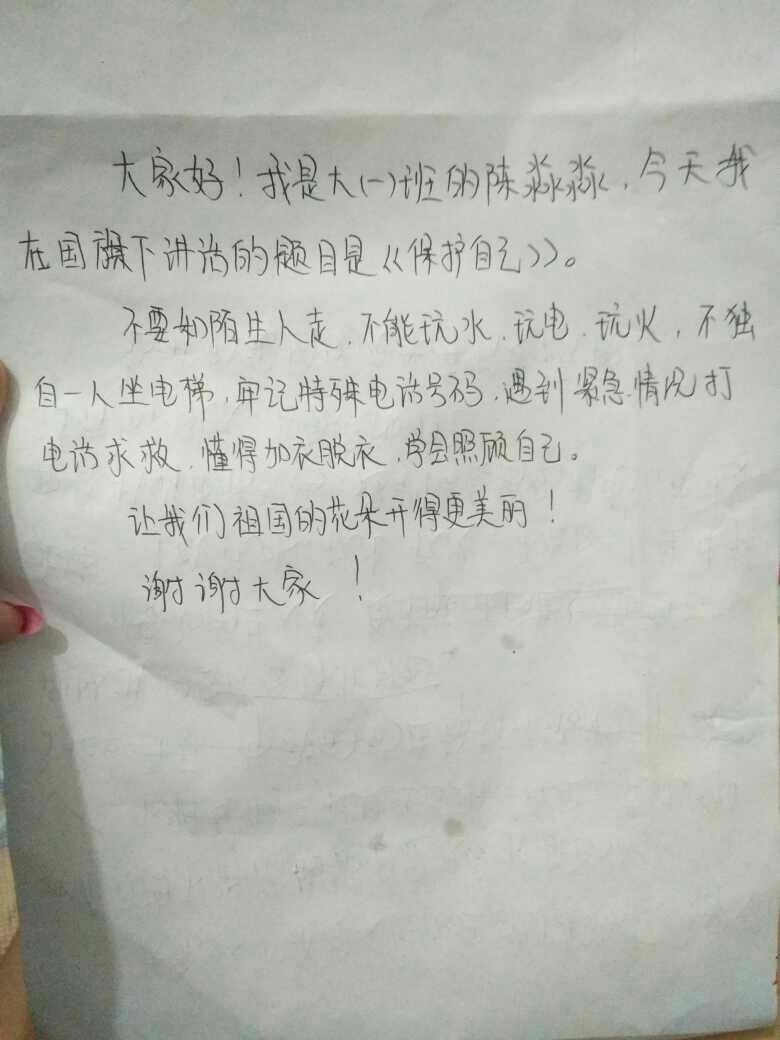 大家好！我是大(一)班的陈淼淼，今天我
在国旗下讲话的题目是《保护自己》。
不要和陌生人走、不能玩水、玩电、玩火，不独
自一人坐电梯，牢记特殊电话号码，遇到紧急情况打
电话求救，懂得加衣脱衣，学会照顾自己。
让我们祖国的花朵开得更美丽！
谢谢大家！